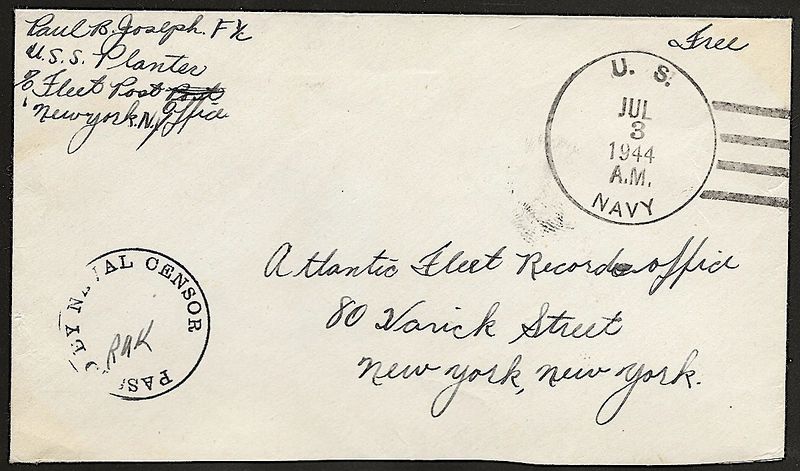 Paul B. Joseph. F 1/c
U.S.S. Planter
c/o Fleet Post Post
New york. N.Y. Office
Free
U. S.
JUL
3
1944
A.M.
NAVY
Atlantic Fleet Records office
80 Varick Street
New york, new york.
PASSED BY NAVAL CENSOR